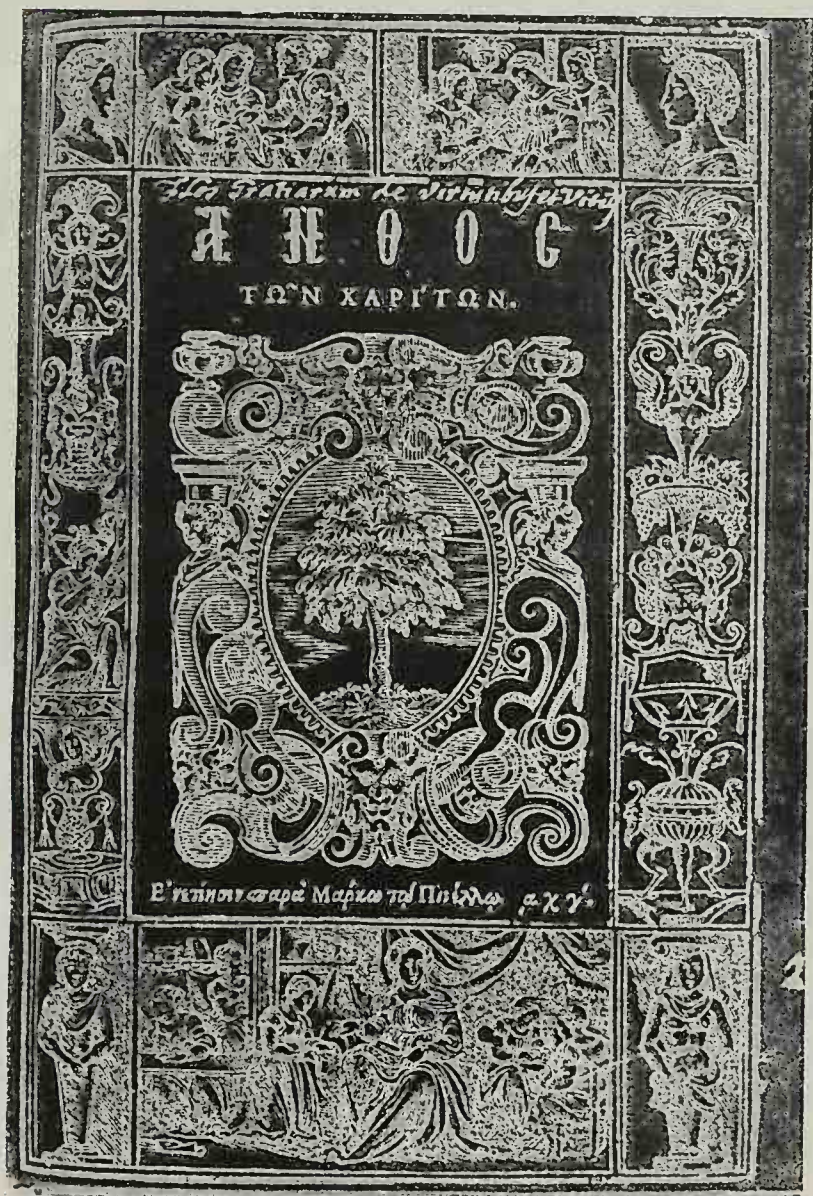 Flos Gratiarum de virtutibus et Vitijs
ΑΝΘΟC
ΤΩ͂Ν ΧΑΡΊΤΩΝ.
Ἐνετίησιν παρὰ Μάρκῳ τῷ Πινέλλῳ. αχγʹ.